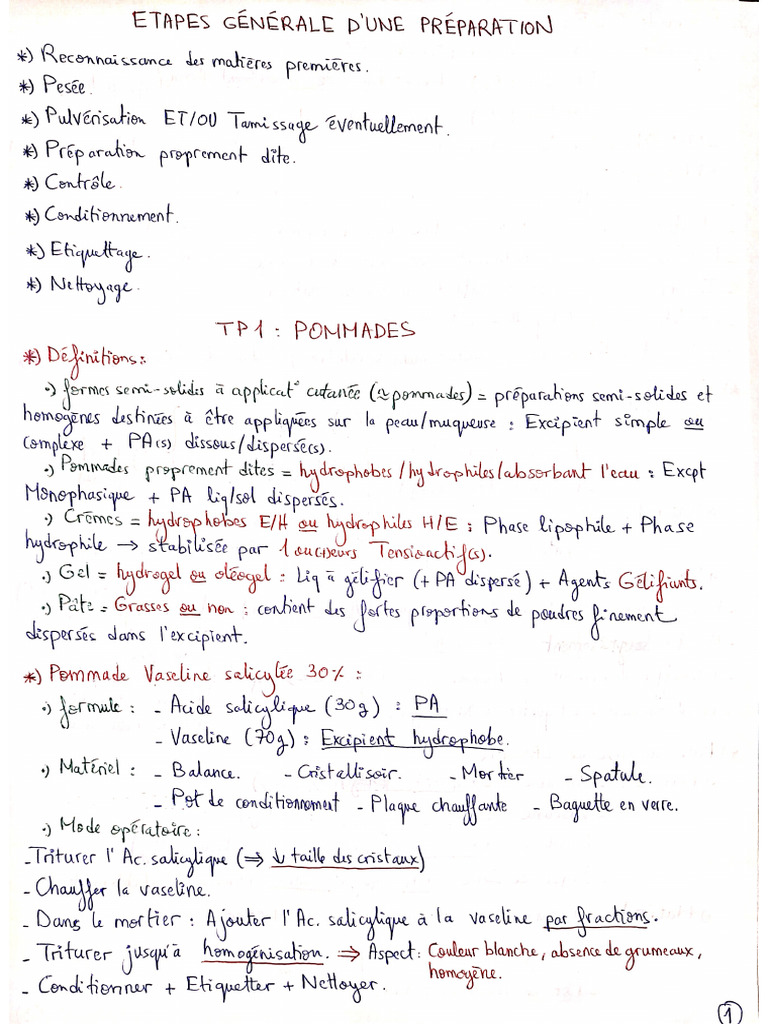 ETAPES GÉNÉRALE D'UNE PRÉPARATION
*) Reconnaissance des matières premières.
*) Pesée.
*) Pulvérisation ET/OU Tamissage éventuellement.
*) Préparation proprement dite.
*) Contrôle.
*) Conditionnement.
*) Etiquettage.
*) Nettoyage.
TP1 : POMMADES
*) Définitions :
•) formes semi-solides à applicat° cutanée (≃ pommades) = préparations semi-solides et
homogènes destinées à être appliquées sur la peau/muqueuse : Excipient simple ou
complexe + PA(s) dissous/dispersé(s).
•) Pommades proprement dites = hydrophobes/hydrophiles/absorbant l'eau : Excpt
Monophasique + PA liq/sol dispersés.
•) Crèmes = hydrophobes E/H ou hydrophiles H/E : Phase lipophile + Phase
hydrophile → stabilisée par 1 ou (+)eurs Tensioactif(s).
•) Gel = hydrogel ou oléogel : Liq à gélifier (+ PA dispersé) + Agents Gélifiants.
•) Pâte = Grasses ou non : contient des fortes proportions de poudres finement
dispersés dans l'excipient.
*) Pommade Vaseline salicylée 30% :
•) formule : - Acide salicylique (30g) : PA
- Vaseline (70g) : Excipient hydrophobe.
•) Matériel : - Balance. - Cristallisoir. - Mortier - Spatule.
- Pot de conditionnement - Plaque chauffante - Baguette en verre.
•) Mode opératoire :
- Triturer l'Ac. salicylique (⇒ ↓ taille des cristaux)
- Chauffer la vaseline.
- Dans le mortier : Ajouter l'Ac. salicylique à la vaseline par fractions.
- Triturer jusqu'à homogénisation. ⇒ Aspect : Couleur blanche, absence de grumeaux,
homogène.
- Conditionner + Etiquetter + Nettoyer.
1